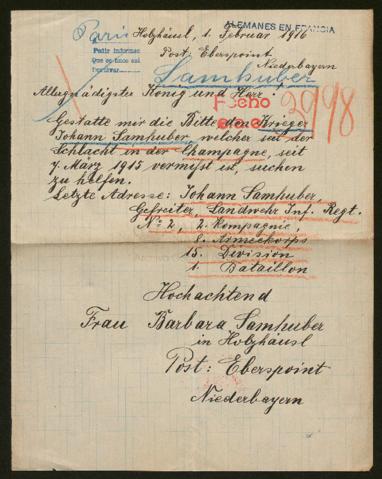 Paris
Holzhäusl, 1. Februar 1916
ALEMANES EN FRANCIA
Post: Eberspoint
Niederbayern
Pedir informes
Samhuber
Allergnädigster König und Herr!
Fecho
2998
Gestatte mir die Bitte den Krieger
Johann Samhuber, welcher seit der
Schlacht in der Champagne, seit
7. März 1915 vermißt ist, suchen
zu helfen.
Letzte Adresse: Johann Samhuber,
Gefreiter, Landwehr Inf. Regt.
No: 2, 2. Kompagnie,
8. Armeekorps
15. Division
1. Bataillon
Hochachtend
Frau Barbara Samhuber
in Holzhäusl
Post: Eberspoint
Niederbayern